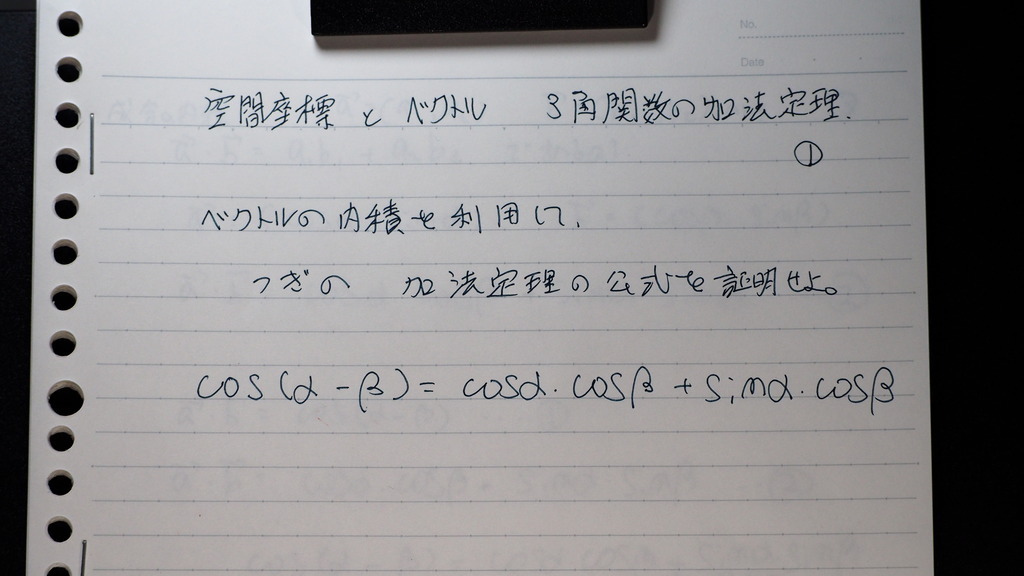 No.
Date
空間座標と ベクトル 3角関数の加法定理.
①
ベクトルの内積を利用して,
つぎの 加法定理の公式を証明せよ。
cos(α-β)= cosα・cosβ + sinα・cosβ